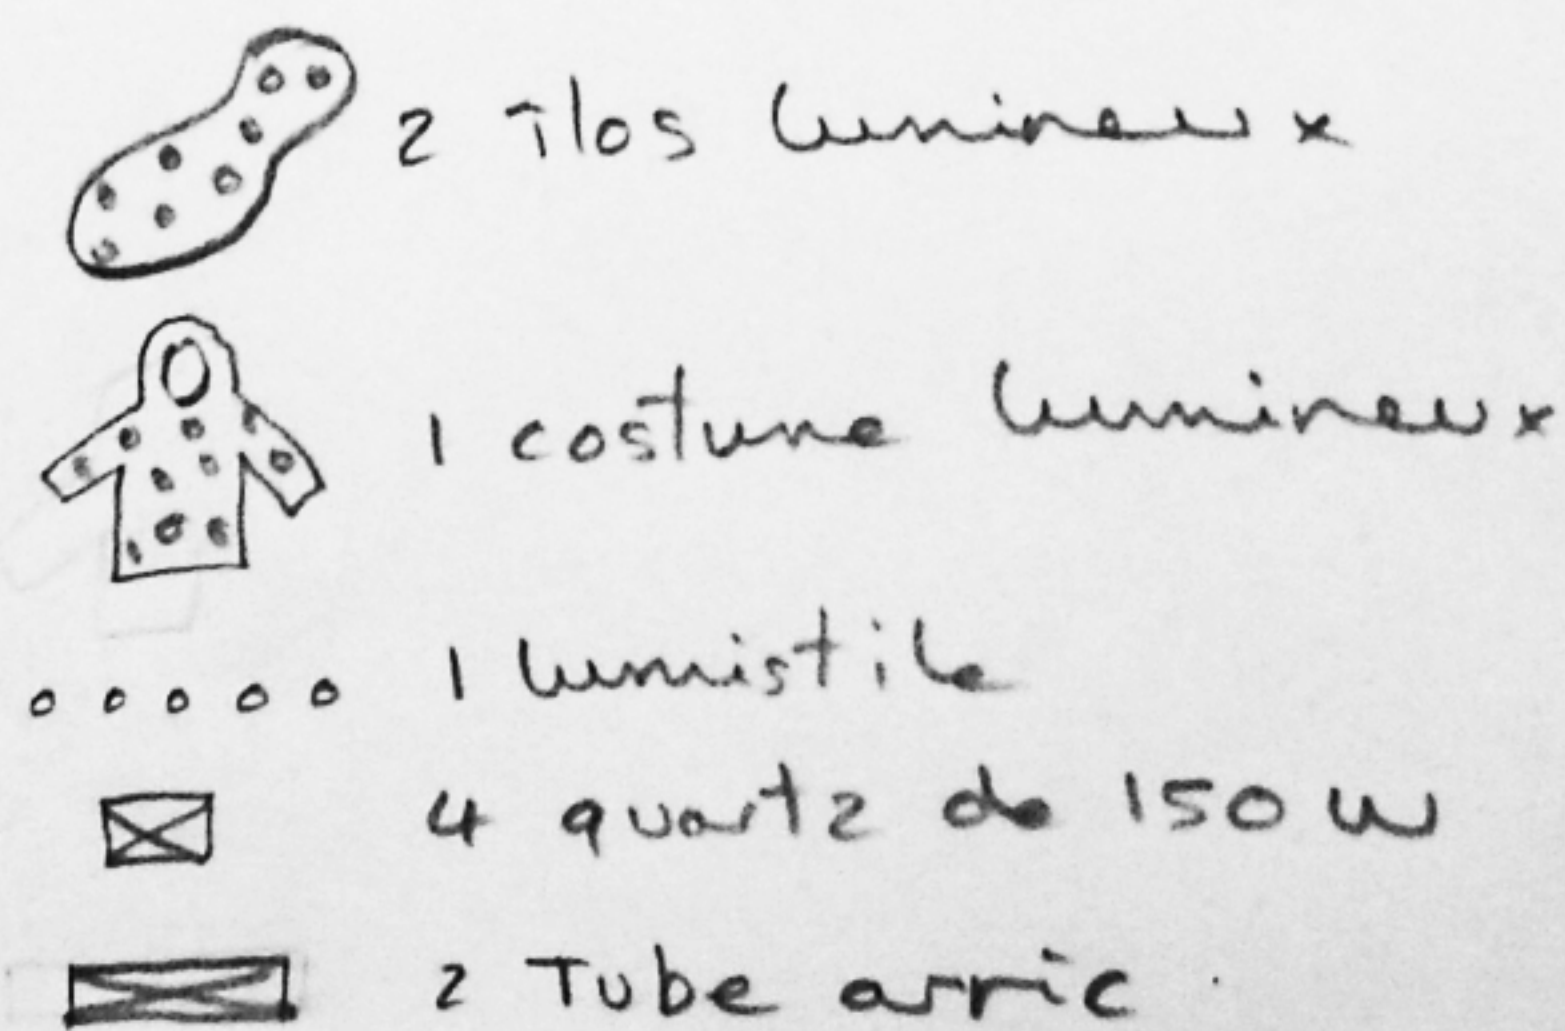 2 îlos lumineux
1 costume lumineux
1 lumistile
4 quartz de 150 W
2 Tube arric